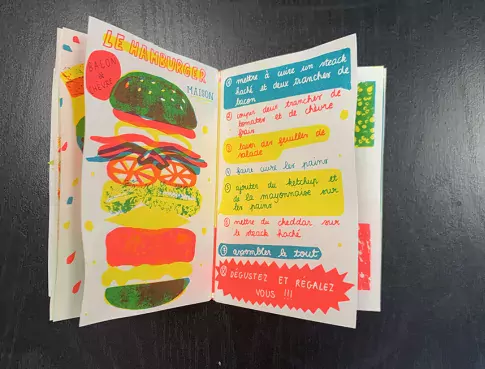 LE HAMBURGER
MAISON
BACON
&
CHÈVRE
① mettre à cuire un steack
haché et deux tranches de
bacon
② couper deux tranches de
tomates et de chèvre
frais
③ laver des feuilles de
salade
④ faire cuire les pains
⑤ ajouter du ketchup et
de la mayonnaise sur
les pains
⑥ mettre du cheddar sur
le steack haché
⑦ assembler le tout
⑧ DÉGUSTEZ ET RÉGALEZ
VOUS !!!